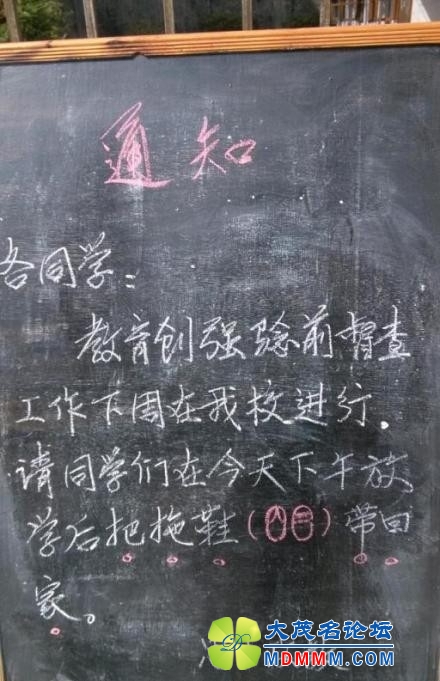 通知
各同学：
教育创强验前督查
工作下周在我校进行.
请同学们在今天下午放
学后把拖鞋（）带回
家。
大茂名论坛
MDMMM.COM